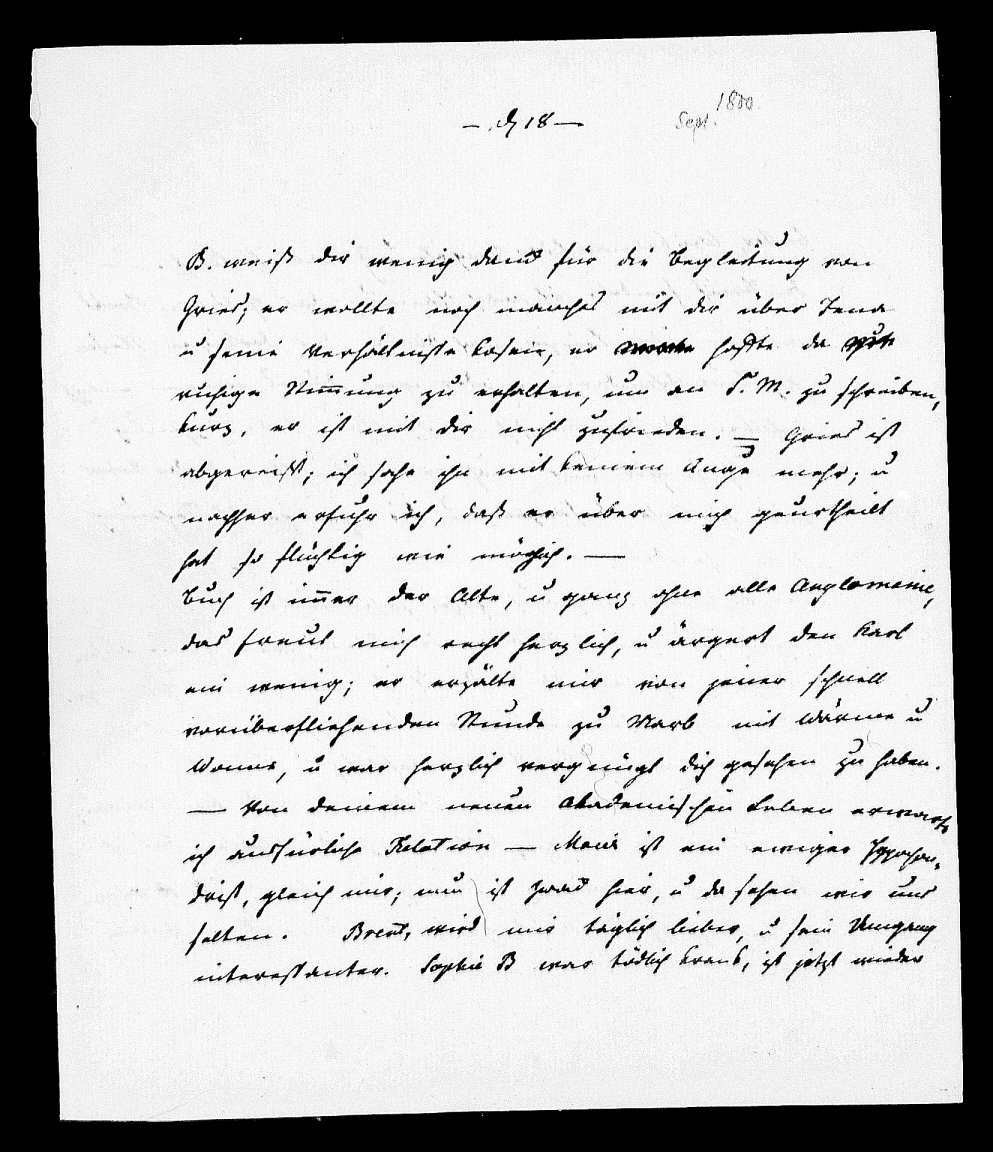 — d 18 —
Sept. 1800.
B. weiß dir wenig Dank für die Begleitung von
Gries; er wollte noch manches mit dir über Jena
u seine Verhältniße kosen, er hoffte da
ruhige Stimmung zu erhalten, um an S. M. zu schreiben,
kurz, er ist mit dir nicht zufrieden. — Gries ist
abgereißt; ich sahe ihn mit keinem Auge mehr; u
nachher erfuhr ich, daß er über mich geurtheilt
hat so flüchtig wie möglich. —
Buch ist im̄er der Alte, u ganz ohne alle Anglomanie,
das freut mich recht herzlich, u ärgert den Karl
ein wenig; er erzälte mir von jener schnell
vorüberfliehenden Stunde zu Marb mit Wärme u
Wonne, u war herzlich vergnügt dich gesehen zu haben.
— Von deinem neuen Akademischen Leben erwarte
ich ausfürliche Relation — ist ein ewiger Hypochon=
drist, gleich mir; nun ist zwar hier, u da sehen wir uns
selten. Brent, wird mir täglich lieber, u sein Umgang
interessanter. Sophie B war tödlich krank, ist jetzt wieder